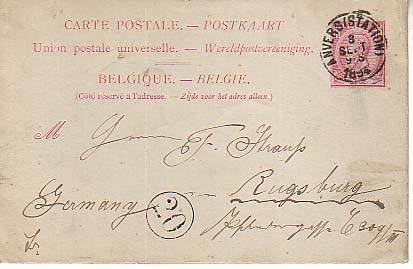 CARTE POSTALE. — POSTKAART
Union postale universelle. — Wereldpostvereeniging.
BELGIQUE. — BELGIE.
(Côté réservé à l'adresse. — Zijde voor het adres alleen.)
ANVERS(STATION)
8
SEPT
9-S
1894
M Herrn F. Strauss
Augsburg
Germany
20